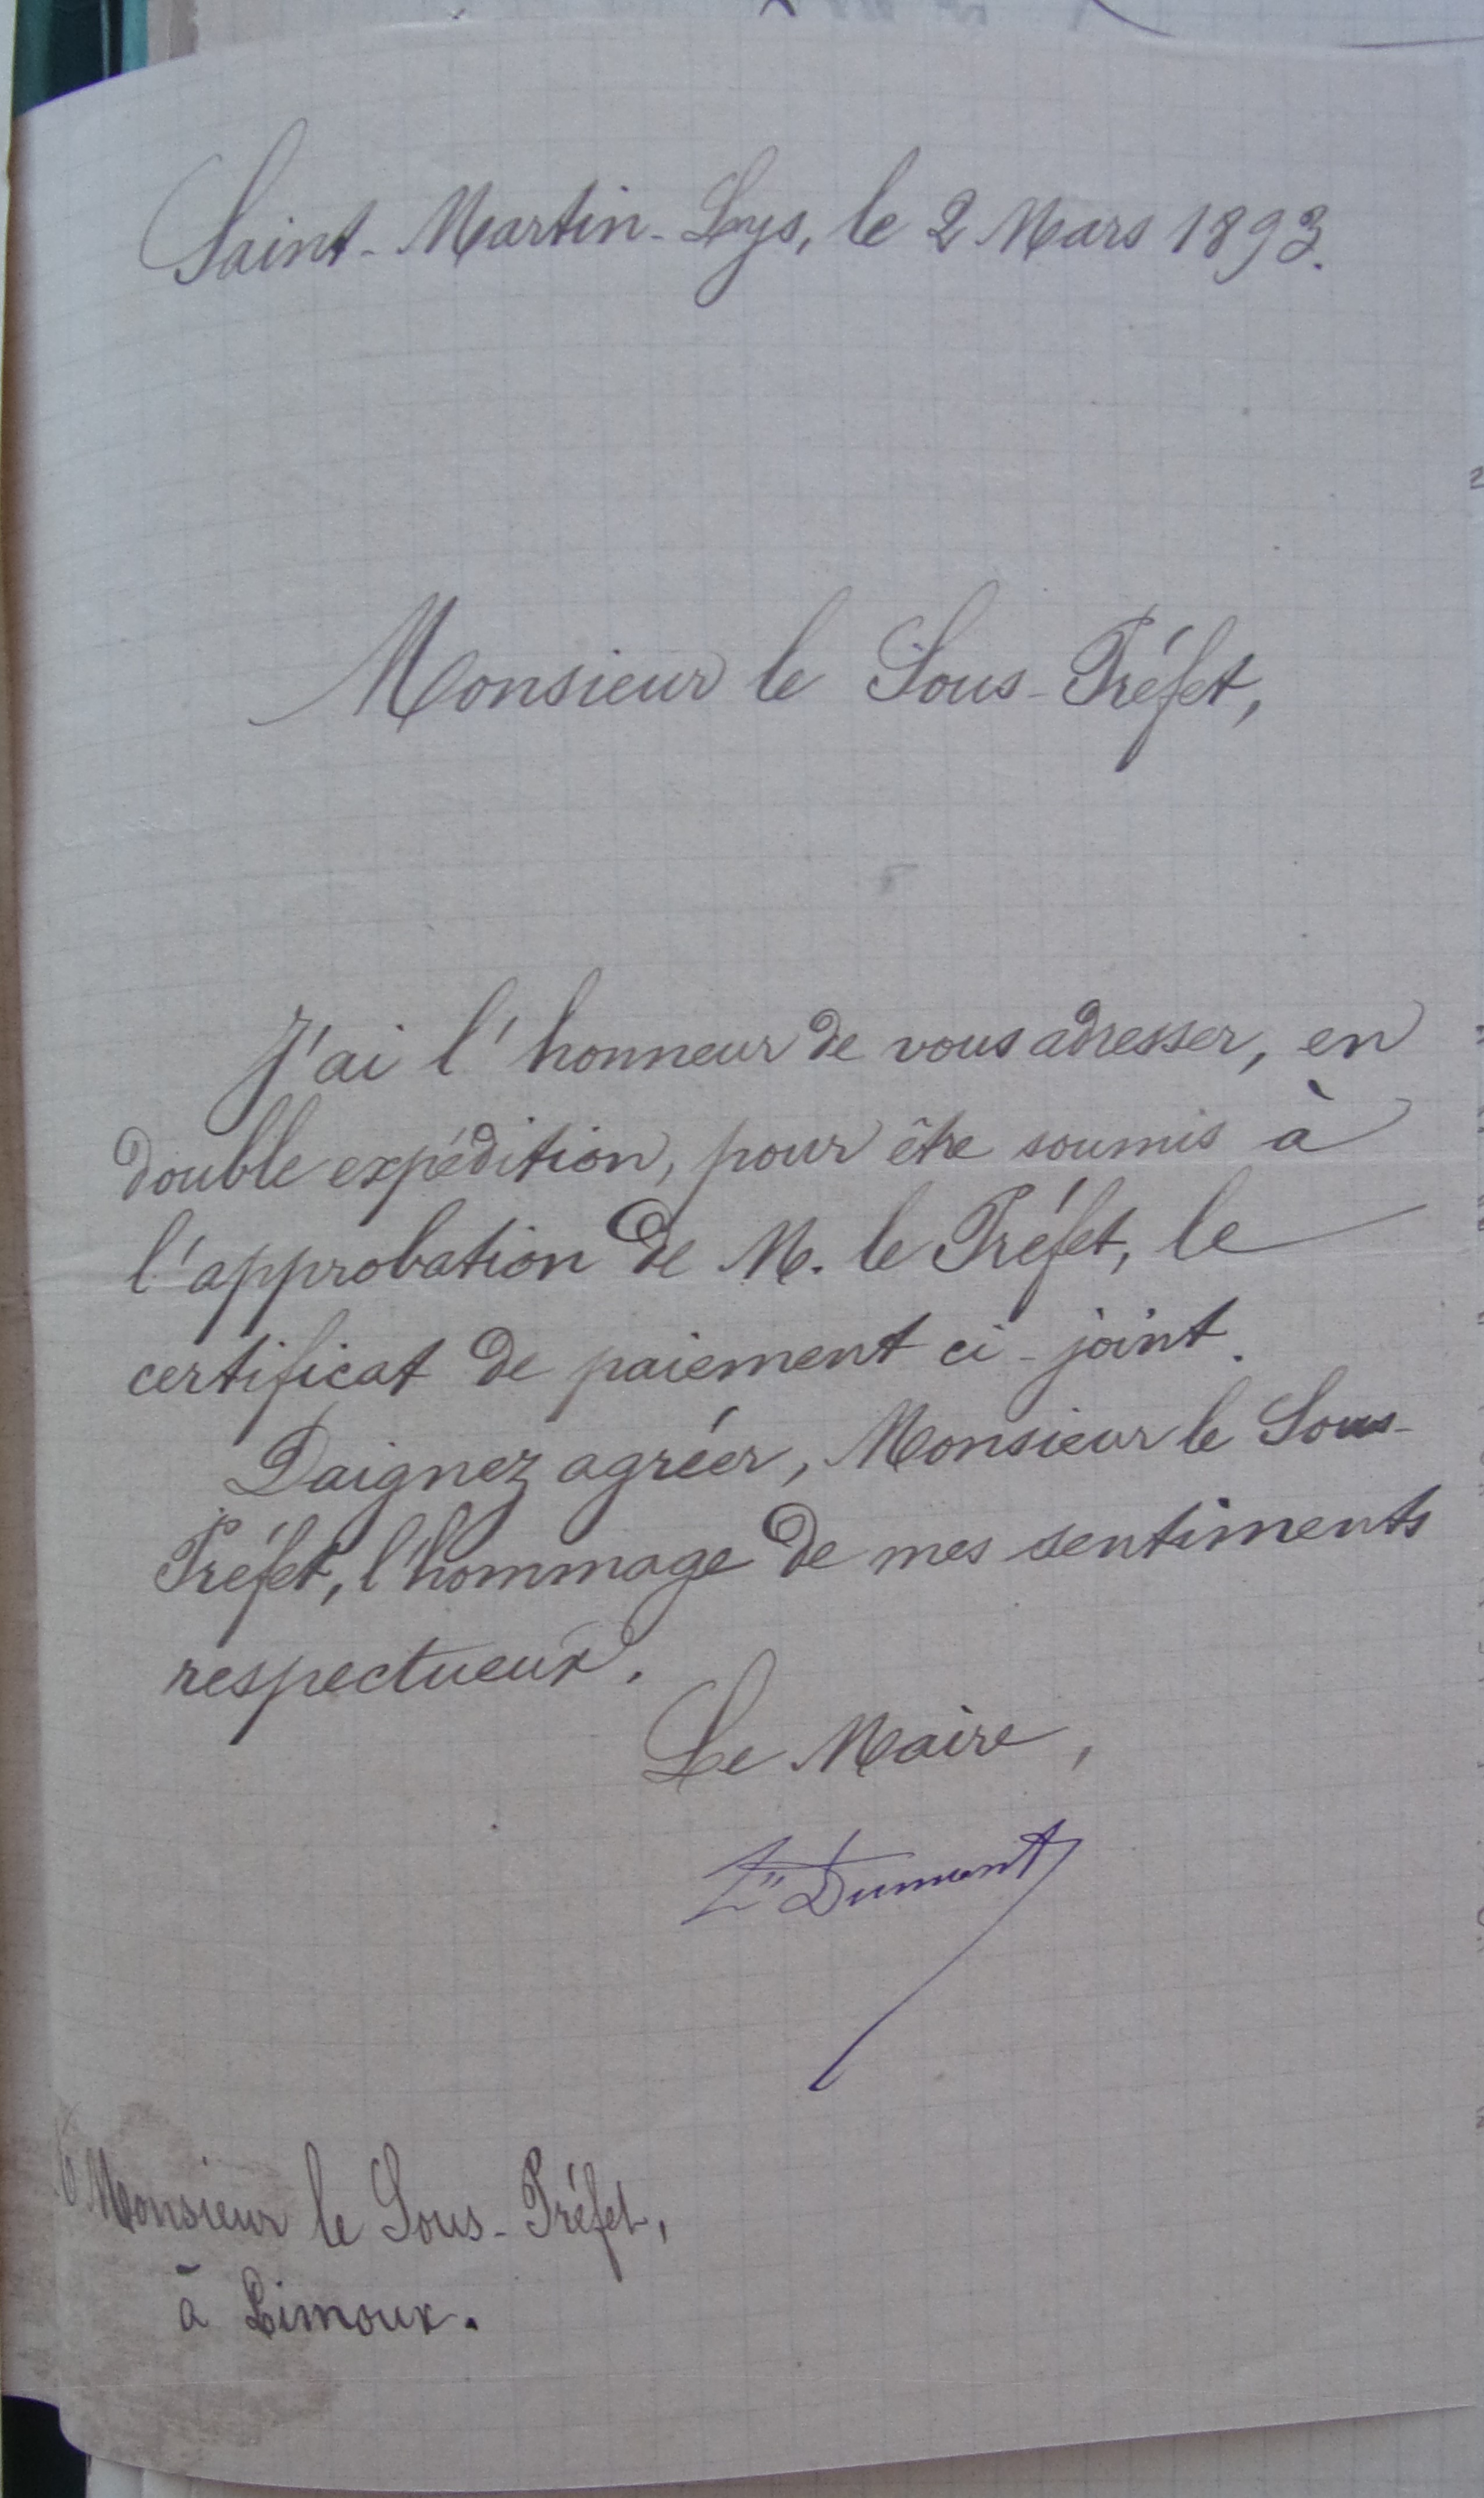 Saint-Martin-Lys, le 2 Mars 1893.
Monsieur le Sous-Préfet,
J'ai l'honneur de vous adresser, en
double expédition, pour être soumis à
l'approbation de M. le Préfet, le
certificat de paiement ci-joint.
Daignez agréer, Monsieur le Sous-
Préfet, l'hommage de mes sentiments
respectueux.
Le Maire,
Dumont
Monsieur le Sous-Préfet,
à Limoux.